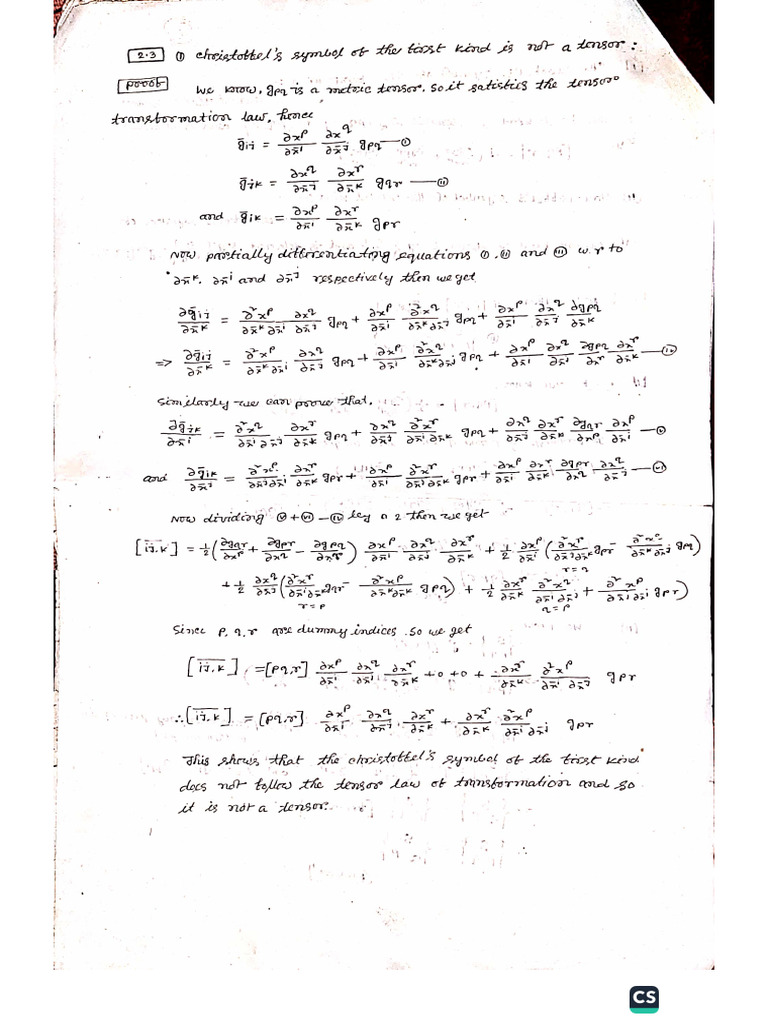 2.3 ① Christoffel's symbol of the first kind is not a tensor:
Proof We know, gpq is a metric tensor. So it satisfies the tensor
transformation law, hence
ḡij = ∂xᵖ/∂x̄ⁱ ∂x^q/∂x̄ʲ gpq —①
ḡjk = ∂x^q/∂x̄ʲ ∂xʳ/∂x̄ᵏ gqr —②
and ḡik = ∂xᵖ/∂x̄ⁱ ∂xʳ/∂x̄ᵏ gpr
Now partially differentiating equations ①, ② and ③ w.r to
∂x̄ᵏ, ∂x̄ⁱ and ∂x̄ʲ respectively then we get
∂ḡij/∂x̄ᵏ = ∂²xᵖ/∂x̄ᵏ∂x̄ⁱ ∂x^q/∂x̄ʲ gpq + ∂xᵖ/∂x̄ⁱ ∂²x^q/∂x̄ᵏ∂x̄ʲ gpq + ∂xᵖ/∂x̄ⁱ ∂x^q/∂x̄ʲ ∂gpq/∂x̄ᵏ
=> ∂ḡij/∂x̄ᵏ = ∂²xᵖ/∂x̄ᵏ∂x̄ⁱ ∂x^q/∂x̄ʲ gpq + ∂xᵖ/∂x̄ⁱ ∂²x^q/∂x̄ᵏ∂x̄ʲ gpq + ∂xᵖ/∂x̄ⁱ ∂x^q/∂x̄ʲ ∂gpq/∂xʳ ∂xʳ/∂x̄ᵏ —④
Similarly we can prove that,
∂ḡjk/∂x̄ⁱ = ∂²x^q/∂x̄ⁱ∂x̄ʲ ∂xʳ/∂x̄ᵏ gpq + ∂x^q/∂x̄ʲ ∂²xʳ/∂x̄ⁱ∂x̄ᵏ gpq + ∂x^q/∂x̄ʲ ∂xʳ/∂x̄ᵏ ∂gqr/∂xᵖ ∂xᵖ/∂x̄ⁱ —⑤
and ∂ḡik/∂x̄ʲ = ∂²xᵖ/∂x̄ʲ∂x̄ⁱ ∂xʳ/∂x̄ᵏ gpr + ∂xᵖ/∂x̄ⁱ ∂²xʳ/∂x̄ʲ∂x̄ᵏ gpr + ∂xᵖ/∂x̄ⁱ ∂xʳ/∂x̄ᵏ ∂gpr/∂x^q ∂x^q/∂x̄ʲ —⑥
Now dividing ⑤+⑥—④ by a 2 then we get
[ij,k] = ½(∂gqr/∂xᵖ + ∂gpr/∂x^q − ∂gpq/∂xʳ) ∂xᵖ/∂x̄ⁱ ∂x^q/∂x̄ʲ ∂xʳ/∂x̄ᵏ + ½ ∂xᵖ/∂x̄ⁱ (∂²xʳ/∂x̄ʲ∂x̄ᵏ gpr − ∂²x^q/∂x̄ᵏ∂x̄ʲ gpq)
r=q
+ ½ ∂x^q/∂x̄ʲ (∂²xʳ/∂x̄ⁱ∂x̄ᵏ gqr − ∂²xᵖ/∂x̄ᵏ∂x̄ⁱ gpq) + ½ ∂xʳ/∂x̄ᵏ ∂²x^q/∂x̄ⁱ∂x̄ʲ + ∂²xᵖ/∂x̄ʲ∂x̄ⁱ gpr)
r=p q=p
Since p, q, r are dummy indices. So we get
[ij,k] = [pq,r] ∂xᵖ/∂x̄ⁱ ∂x^q/∂x̄ʲ ∂xʳ/∂x̄ᵏ +0 +0 + ∂xʳ/∂x̄ᵏ ∂²xᵖ/∂x̄ⁱ∂x̄ʲ gpr
∴ [ij,k] = [pq,r] ∂xᵖ/∂x̄ⁱ ∂x^q/∂x̄ʲ ∂xʳ/∂x̄ᵏ + ∂xʳ/∂x̄ᵏ ∂²xᵖ/∂x̄ⁱ∂x̄ʲ gpr
This shows that the christoffel's symbol of the first kind
does not follow the tensor law of transformation and so
it is not a tensor.
CS